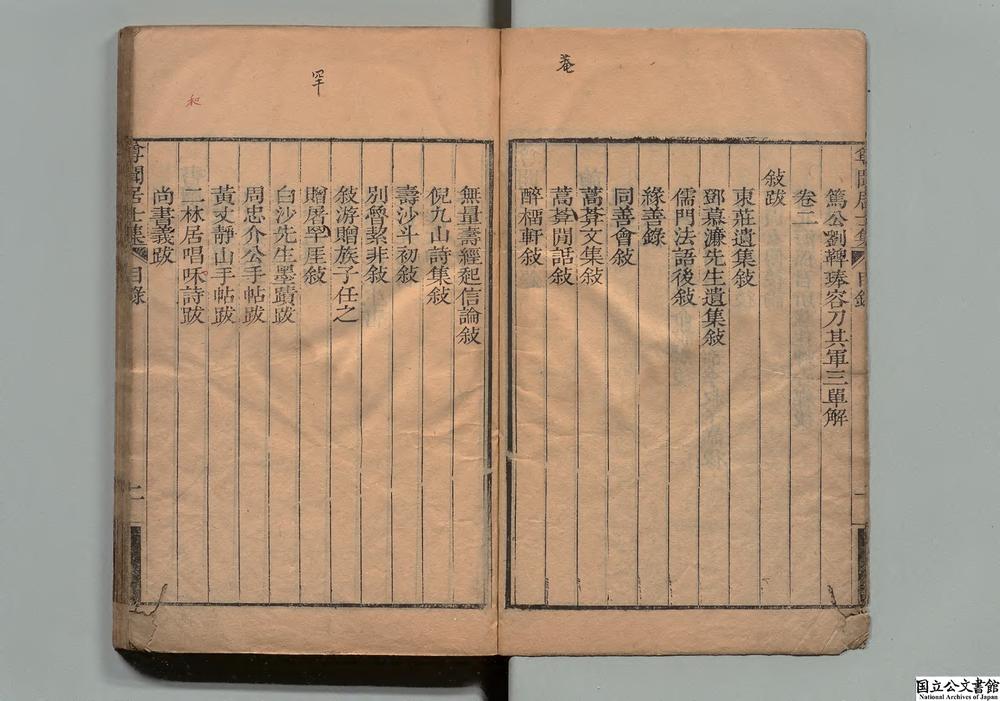 菴
篤公劉鞞琫容刀其軍三單解
卷二
敍跋
東莊遺集敍
鄧慕濂先生遺集敍
儒門法語後敍
緣善錄
同善會敍
蒿菴文集敍
蒿菴閒話敍
醉榴軒敍
罕
和
無量壽經起信論敍
倪九山詩集敍
壽沙斗初敍
別曾絜非敍
敍游贈族子任之
贈屠罕厓敍
白沙先生墨蹟跋
周忠介公手帖跋
黃丈靜山手帖跋
二林居唱咊詩跋
尚書義跋
居士集
目錄
二
国立公文書館
National Archives of Japan